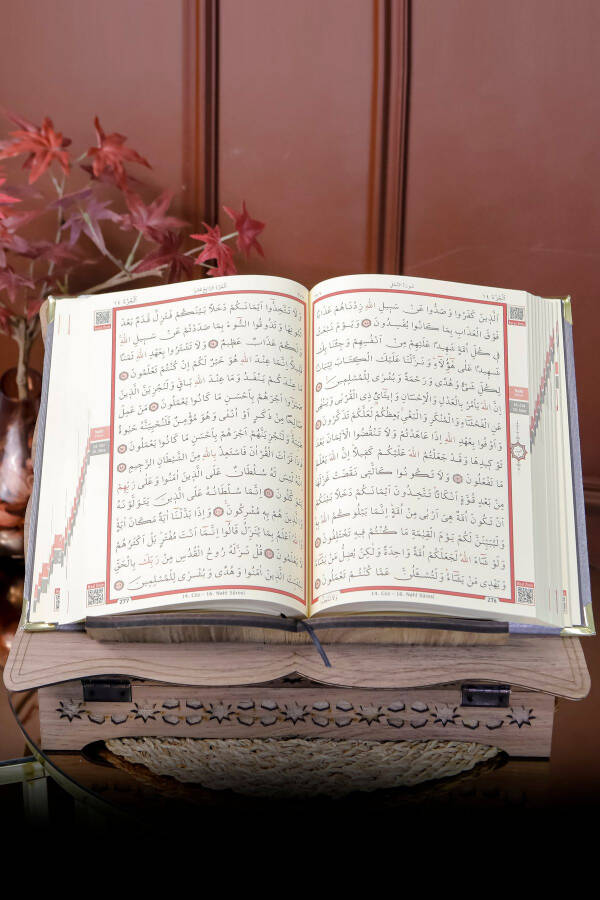 اَلْجُزْءُ ١٤
سُورَةُ النَّحْلِ
اَلَّذِينَ كَفَرُوا وَصَدُّوا عَنْ سَبِيلِ اللّٰهِ زِدْنَاهُمْ عَذَابًا
فَوْقَ الْعَذَابِ بِمَا كَانُوا يُفْسِدُونَ وَيَوْمَ نَبْعَثُ
فِي كُلِّ اُمَّةٍ شَهِيدًا عَلَيْهِمْ مِنْ اَنْفُسِهِمْ وَجِئْنَا بِكَ
شَهِيدًا عَلٰى هٰٓؤُلَٓاءِ وَنَزَّلْنَا عَلَيْكَ الْكِتَابَ تِبْيَانًا
لِكُلِّ شَيْءٍ وَهُدًى وَرَحْمَةً وَبُشْرٰى لِلْمُسْلِمِينَ
اِنَّ اللّٰهَ يَأْمُرُ بِالْعَدْلِ وَالْاِحْسَانِ وَاِيتَٓائِ ذِي الْقُرْبٰى وَيَنْهٰى
عَنِ الْفَحْشَٓاءِ وَالْمُنْكَرِ وَالْبَغْيِ يَعِظُكُمْ لَعَلَّكُمْ تَذَكَّرُونَ
وَاَوْفُوا بِعَهْدِ اللّٰهِ اِذَا عَاهَدْتُمْ وَلَا تَنْقُضُوا الْاَيْمَانَ بَعْدَ
تَوْكِيدِهَا وَقَدْ جَعَلْتُمُ اللّٰهَ عَلَيْكُمْ كَفِيلًا اِنَّ اللّٰهَ يَعْلَمُ
مَا تَفْعَلُونَ وَلَا تَكُونُوا كَالَّتِي نَقَضَتْ غَزْلَهَا
مِنْ بَعْدِ قُوَّةٍ اَنْكَاثًا تَتَّخِذُونَ اَيْمَانَكُمْ دَخَلًا بَيْنَكُمْ
اَنْ تَكُونَ اُمَّةٌ هِيَ اَرْبٰى مِنْ اُمَّةٍ اِنَّمَا يَبْلُوكُمُ اللّٰهُ بِهِ
وَلَيُبَيِّنَنَّ لَكُمْ يَوْمَ الْقِيٰمَةِ مَا كُنْتُمْ فِيهِ تَخْتَلِفُونَ
وَلَوْ شَٓاءَ اللّٰهُ لَجَعَلَكُمْ اُمَّةً وَاحِدَةً وَلٰكِنْ يُضِلُّ مَنْ يَشَٓاءُ
وَيَهْدِي مَنْ يَشَٓاءُ وَلَتُسْـَٔلُنَّ عَمَّا كُنْتُمْ تَعْمَلُونَ
14. Cüz - 16. Nahl Sûresi
276
اَلْجُزْءُ ١٤
وَلَا تَتَّخِذُٓوا اَيْمَانَكُمْ دَخَلًا بَيْنَكُمْ فَتَزِلَّ قَدَمٌ بَعْدَ
ثُبُوتِهَا وَتَذُوقُوا السُّٓوءَ بِمَا صَدَدْتُمْ عَنْ سَبِيلِ اللّٰهِ
وَلَكُمْ عَذَابٌ عَظِيمٌ وَلَا تَشْتَرُوا بِعَهْدِ اللّٰهِ ثَمَنًا
قَلِيلًا اِنَّمَا عِنْدَ اللّٰهِ هُوَ خَيْرٌ لَكُمْ اِنْ كُنْتُمْ تَعْلَمُونَ
مَا عِنْدَكُمْ يَنْفَدُ وَمَا عِنْدَ اللّٰهِ بَاقٍ وَلَنَجْزِيَنَّ الَّذِينَ
صَبَرُٓوا اَجْرَهُمْ بِاَحْسَنِ مَا كَانُوا يَعْمَلُونَ مَنْ عَمِلَ
صَالِحًا مِنْ ذَكَرٍ اَوْ اُنْثٰى وَهُوَ مُؤْمِنٌ فَلَنُحْيِيَنَّهُ حَيٰوةً
طَيِّبَةً وَلَنَجْزِيَنَّهُمْ اَجْرَهُمْ بِاَحْسَنِ مَا كَانُوا يَعْمَلُونَ
فَاِذَا قَرَأْتَ الْقُرْاٰنَ فَاسْتَعِذْ بِاللّٰهِ مِنَ الشَّيْطَانِ الرَّجِيمِ
اِنَّهُ لَيْسَ لَهُ سُلْطَانٌ عَلَى الَّذِينَ اٰمَنُوا وَعَلٰى رَبِّهِمْ
يَتَوَكَّلُونَ اِنَّمَا سُلْطَانُهُ عَلَى الَّذِينَ يَتَوَلَّوْنَهُ
وَالَّذِينَ هُمْ بِهِ مُشْرِكُونَ وَاِذَا بَدَّلْنَٓا اٰيَةً مَكَانَ اٰيَةٍ
وَاللّٰهُ اَعْلَمُ بِمَا يُنَزِّلُ قَالُٓوا اِنَّمَٓا اَنْتَ مُفْتَرٍ بَلْ اَكْثَرُهُمْ
لَا يَعْلَمُونَ قُلْ نَزَّلَهُ رُوحُ الْقُدُسِ مِنْ رَبِّكَ بِالْحَقِّ
لِيُثَبِّتَ الَّذِينَ اٰمَنُوا وَهُدًى وَبُشْرٰى لِلْمُسْلِمِينَ
277
14. Cüz - 16. Nahl Sûresi